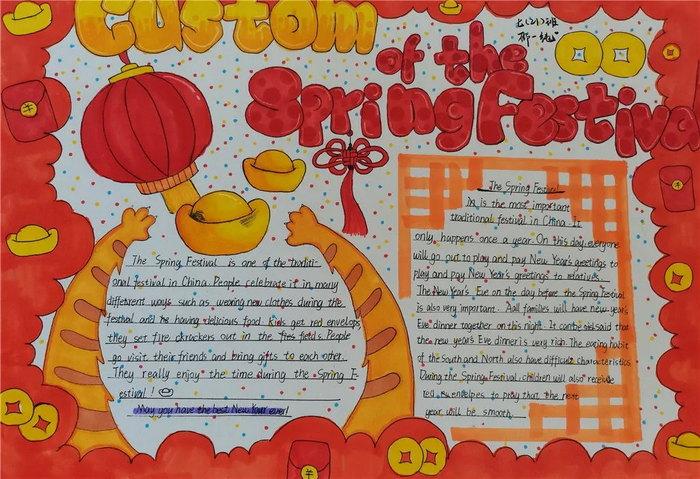 Custom
of the
Spring Festival
The Spring Festival is one of the traditi-
onal festival in China. People celebrate it in many
different ways such as wearing new clothes during the
festival and having delicious food. Kids get red envelops
they set fire crackers out in the fields. People
go visit their friends and bring gifts to each other.
They really enjoy the time during the Spring F-
estival!
May you have the best New Year ever!
The Spring Festival
is the most important
traditional festival in China. It
only happens once a year. On this day, everyone
will go out to play and pay New Year's greetings to
play and pay New Year's greetings to relatives.
The New Year's Eve on the day before the Spring Festival
is also very important. All families will have new year's
Eve dinner together on this night. It can be said that
the new year's Eve dinner is very rich. The eating habit
of the South and North also have difficult characteristics
During the Spring Festival children will also receive
red envelpes to pray that the next
year will be smooth.